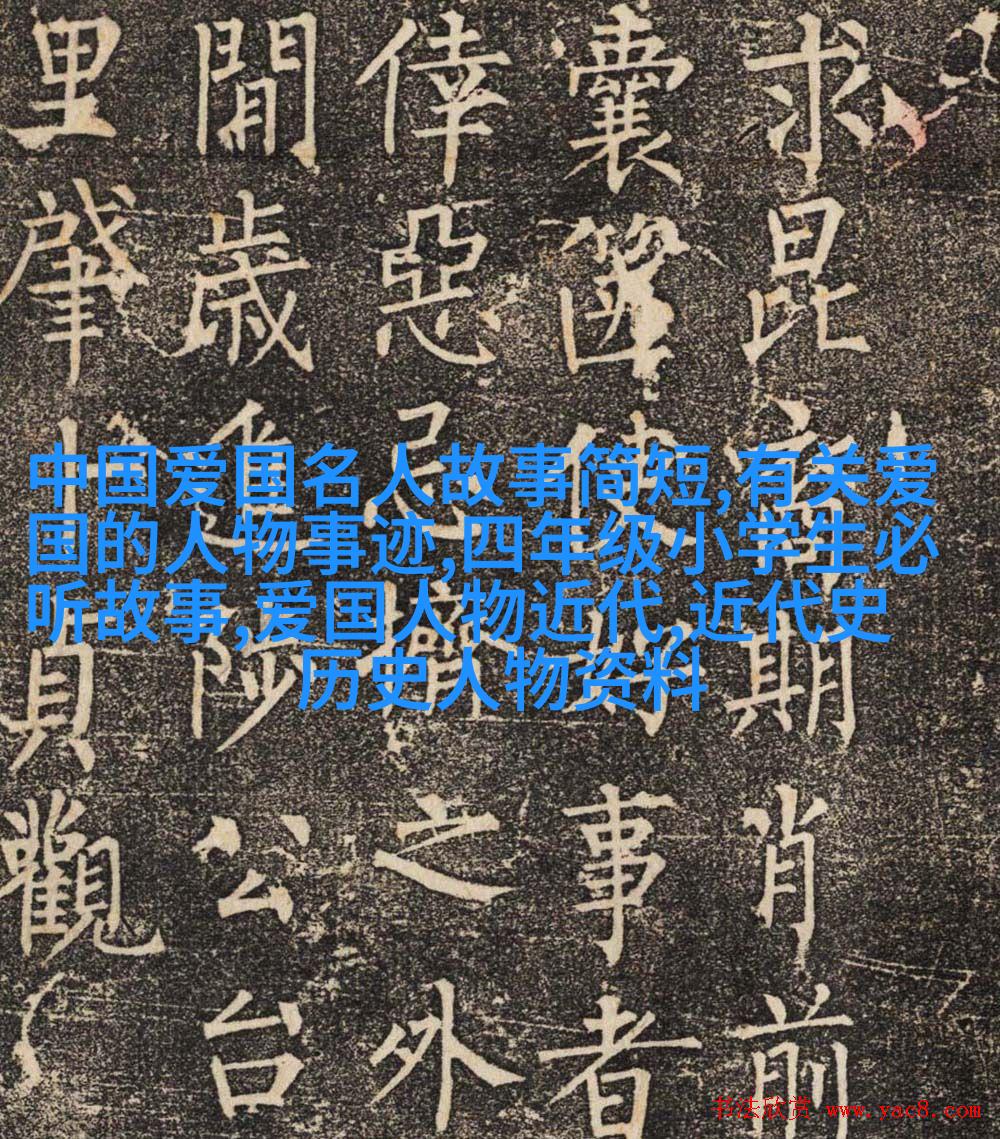 中国爱国名人故事简短,有关爱
国的人物事迹,四年级小学生必
听故事,爱国人物近代,近代史
历史人物资料
求昆期肖前
囊篋使事者
倖惡忌之外
開歲進陟公台
里肇貞觀
书法欣赏 www.yac8.com